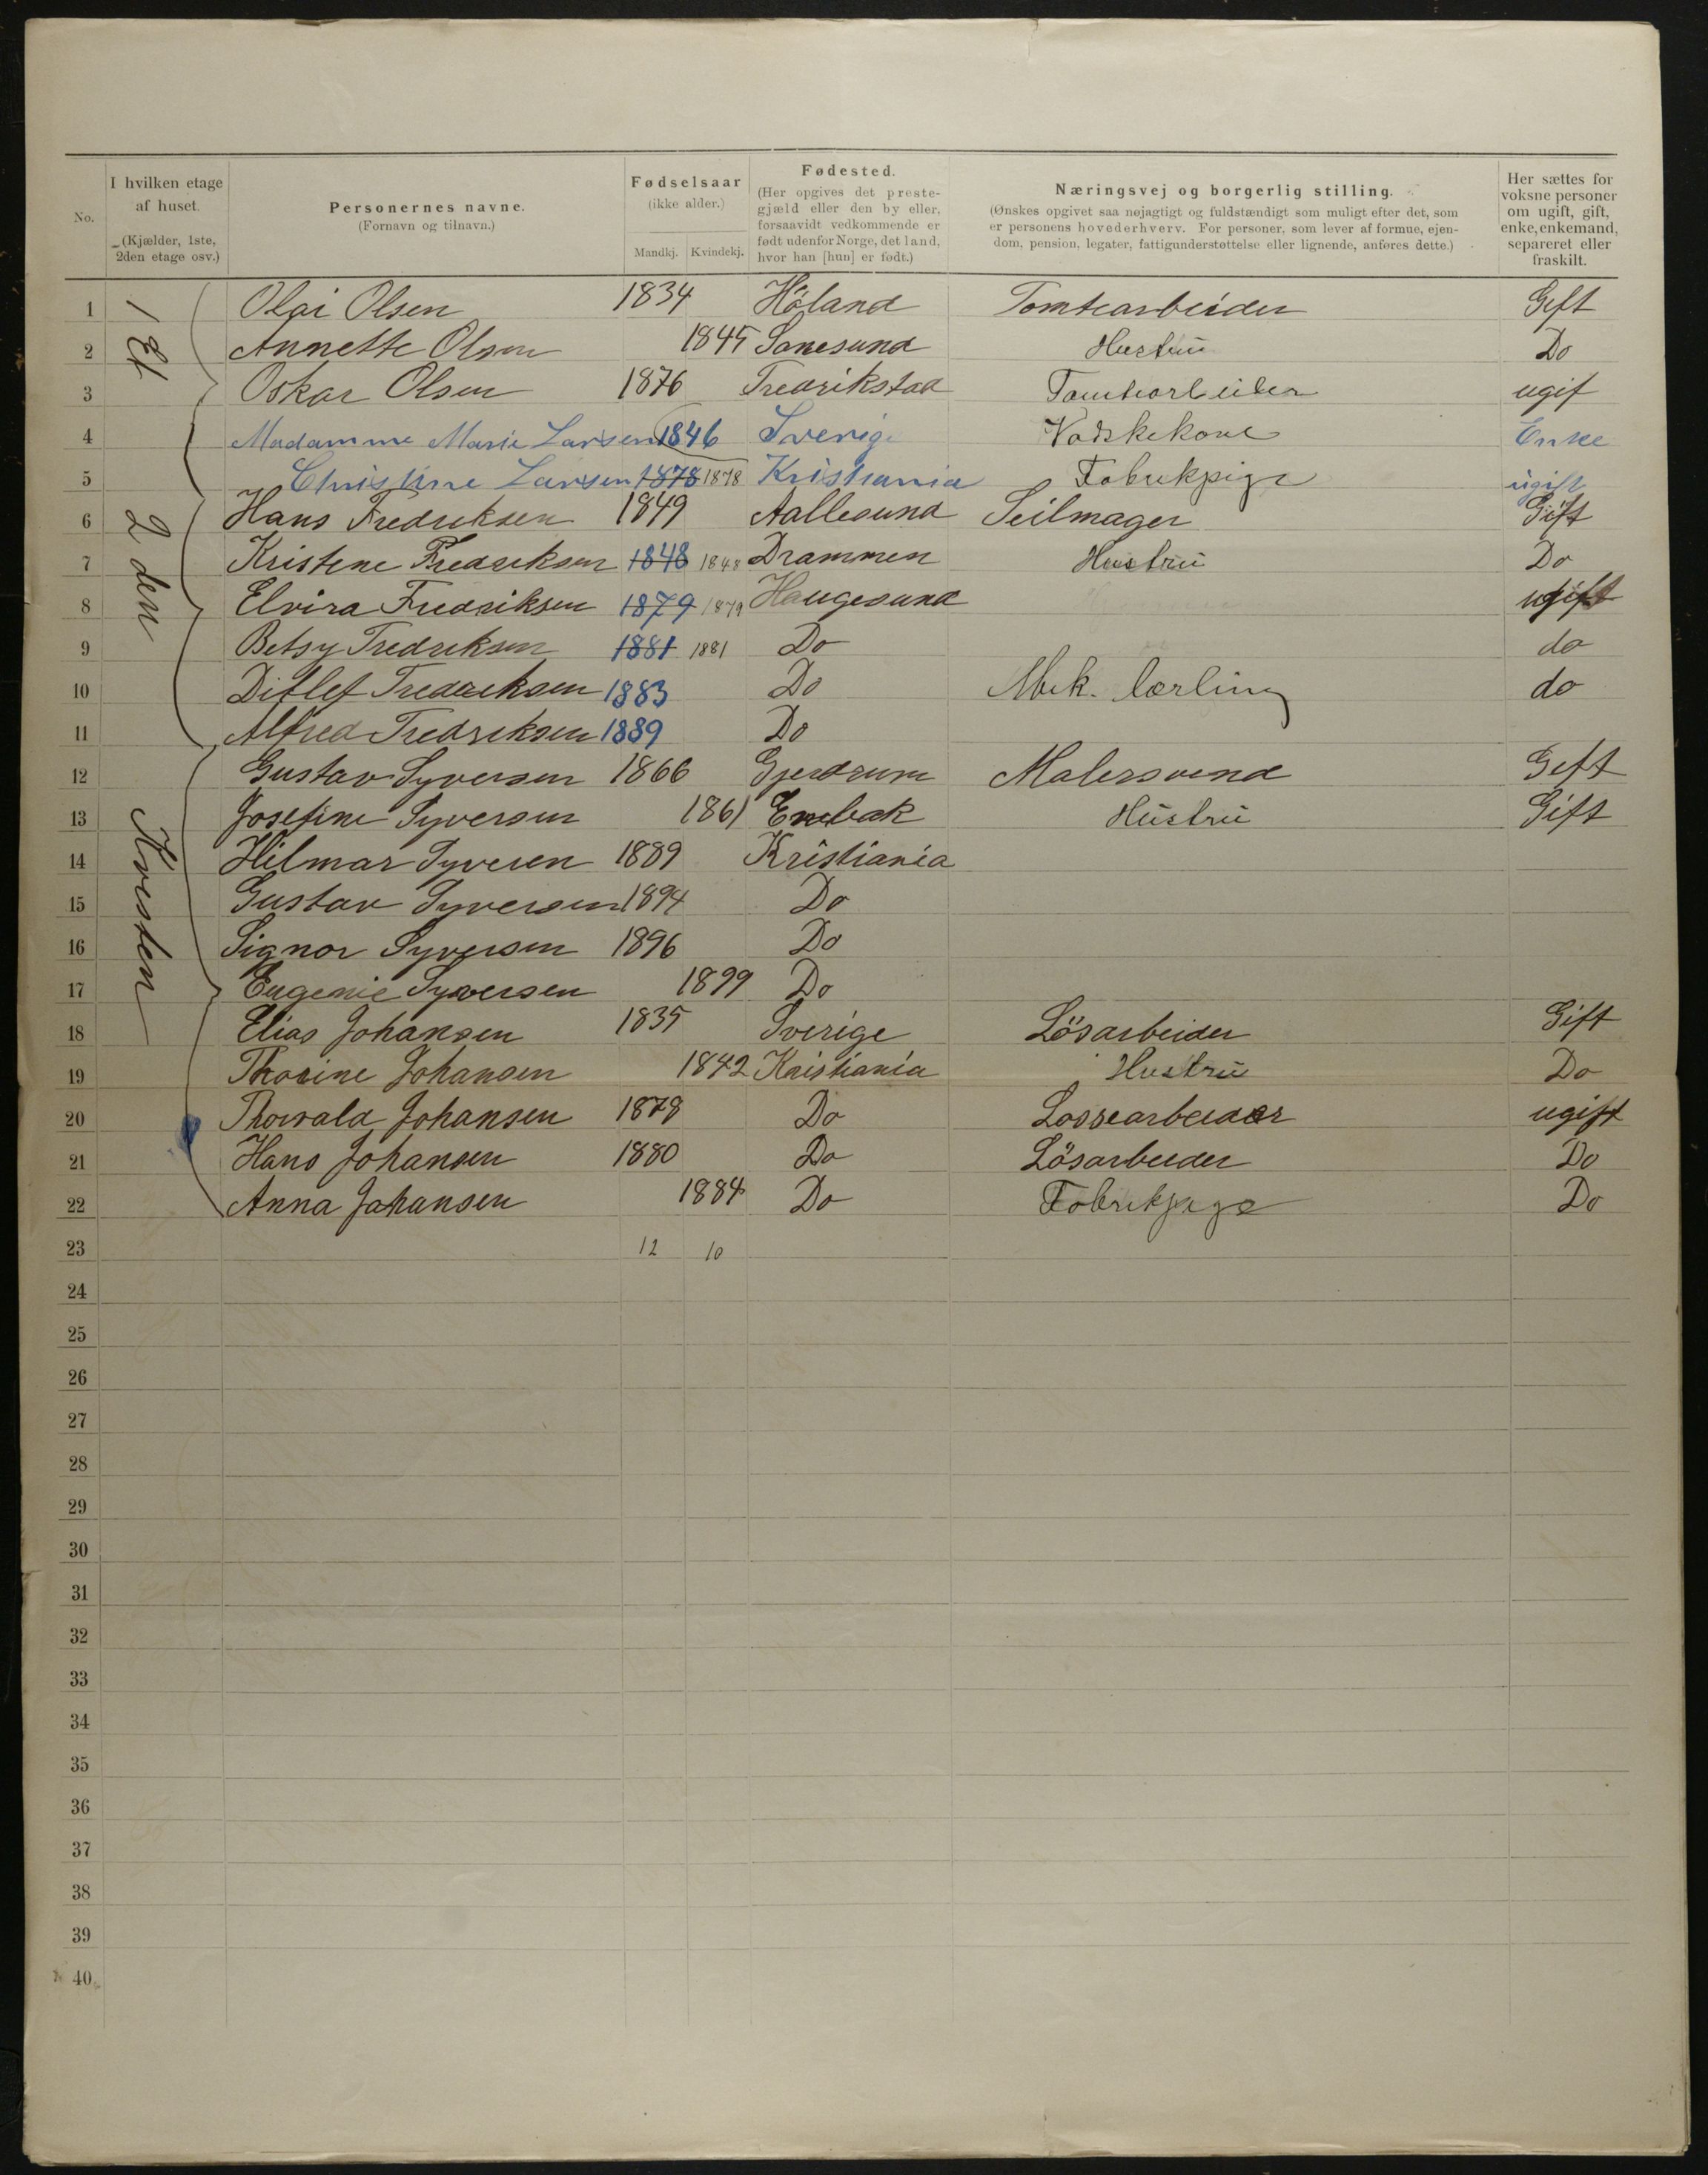 No.
I hvilken etage af huset. (Kjælder, 1ste, 2den etage osv.)
Personernes navne. (Fornavn og tilnavn.)
Fødselsaar (ikke alder.) Mandkj. Kvindekj.
Fødested. (Her opgives det prestegjæld eller den by eller, forsaavidt vedkommende er født udenfor Norge, det land, hvor han [hun] er født.)
Næringsvej og borgerlig stilling. (Ønskes opgivet saa nøjagtigt og fuldstændigt som muligt efter det, som er personens hovederhverv. For personer, som lever af formue, ejendom, pension, legater, fattigunderstøttelse eller lignende, anføres dette.)
Her sættes for voksne personer om ugift, gift, enke, enkemand, separeret eller fraskilt.
1 Et
1 Olai Olsen 1834 Höland Tomtearbeider Gift
2 Annette Olsen 1845 Sanesund Hustru Do
3 Oskar Olsen 1876 Fredrikstad Tomtearbeider ugif
4 Madamme Marie Larsen 1846 Sverige Vadskekone Enke
5 Christine Larsen 1878 1878 Kristiania Fabrikpige ugift
2 den
6 Hans Fredriksen 1849 Aallesund Seilmager Gift
7 Kristene Fredriksen 1848 1848 Drammen Hustru Do
8 Elvira Fredriksen 1879 1879 Haugesund ugift
9 Betsy Fredriksen 1881 1881 Do do
10 Ditlef Fredriksen 1883 Do Mek. lærling do
11 Alfred Fredriksen 1889 Do
Kvisten
12 Gustav Syversen 1866 Gjerdrum Malersvend Gift
13 Josefine Syversen 1861 Enebak Hustru Gift
14 Hilmar Syversen 1889 Kristiania
15 Gustav Syversen 1894 Do
16 Signor Syversen 1896 Do
17 Eugenie Syversen 1899 Do
18 Elias Johansen 1835 Sverige Lösarbeider Gift
19 Thorine Johansen 1842 Kristiania Hustru Do
20 Thorvald Johansen 1878 Do Lossearbeider ugift
21 Hans Johansen 1880 Do Lösarbeider Do
22 Anna Johansen 1884 Do Fabrikpige Do
23 12 10
24
25
26
27
28
29
30
31
32
33
34
35
36
37
38
39
40